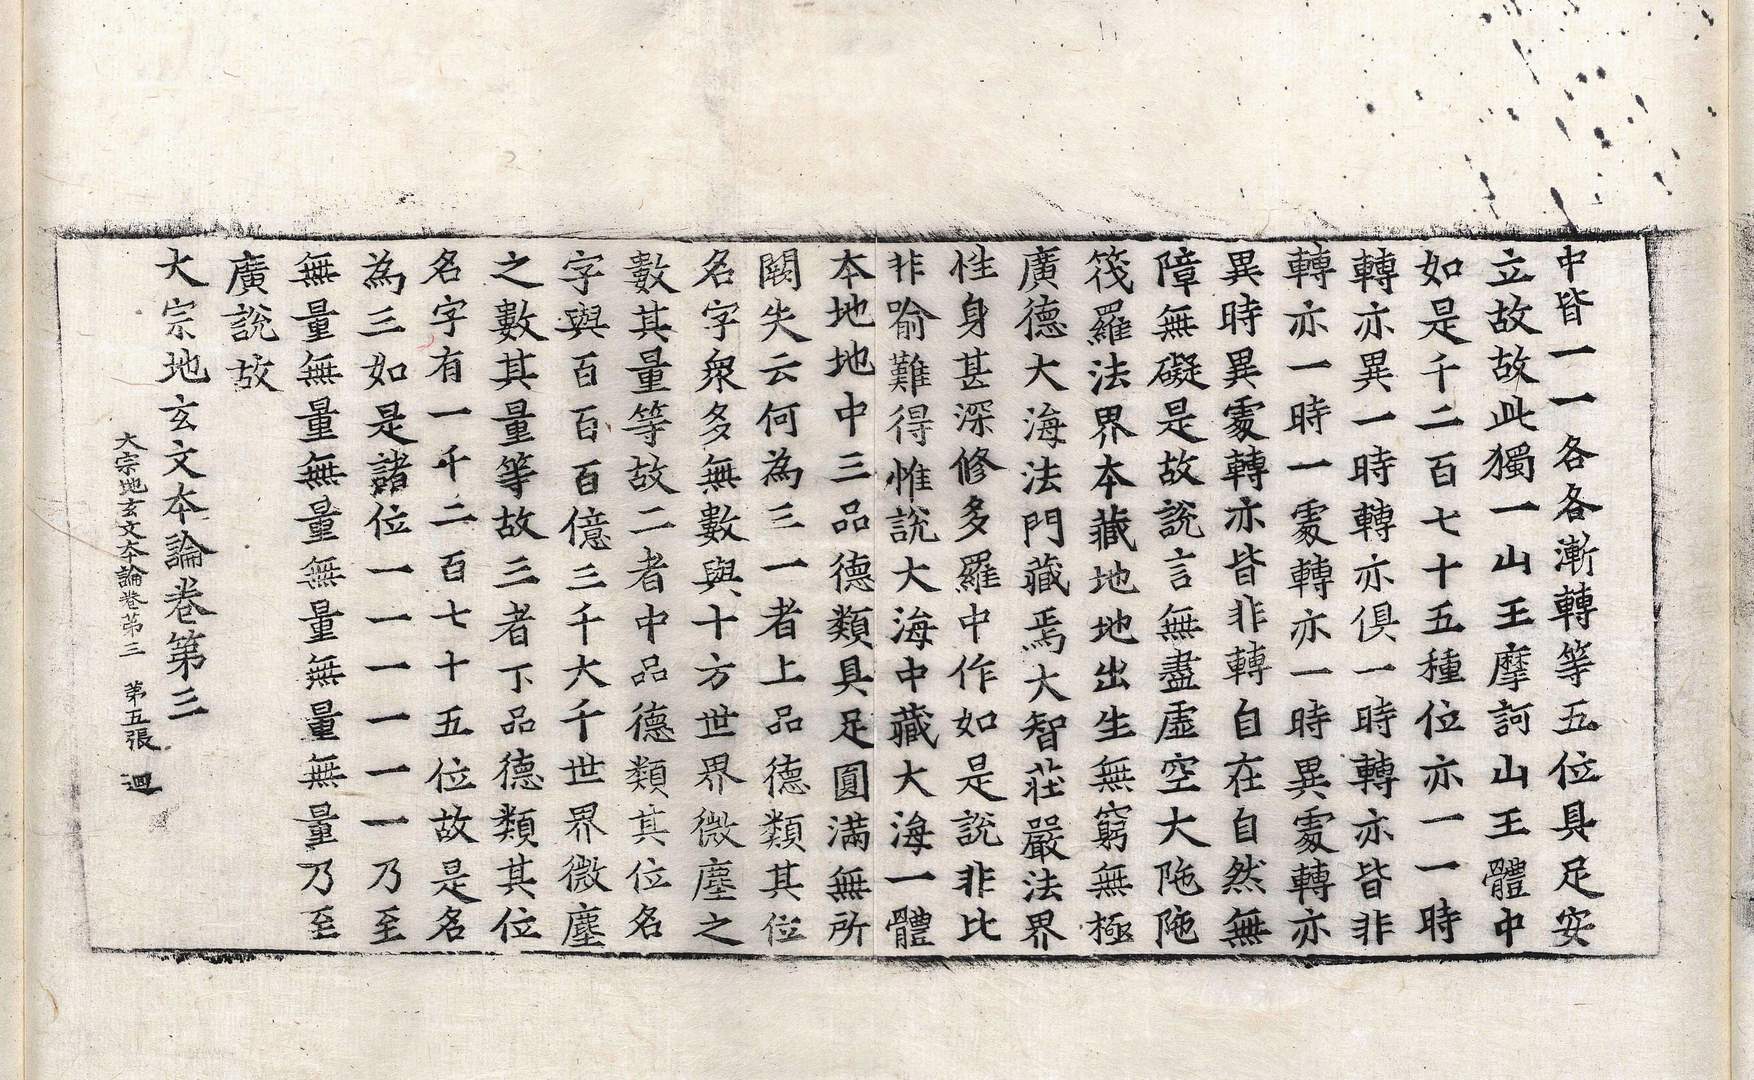 中皆一一各各漸轉等五位具足安
立故故此獨一山王摩訶山王體中
如是千二百七十五種位亦一一時
轉亦異一時轉亦俱一時轉亦皆非
轉亦一時一處轉亦一時異處轉亦
異時異處轉亦皆非轉自在自然無
障無礙是故說言無盡虛空大陁陁
筏羅法界本藏地地出生無窮無極
廣德大海法門藏焉大智莊嚴法界
性身甚深修多羅中作如是說非比
非喻難得惟說大海中藏大海一體
本地地中三品德類具足圓滿無所
闕失云何為三一者上品德類其位
名字衆多無數與十方世界微塵之
數其量等故二者中品德類其位名
字與百百百億三千大千世界微塵
之數其量等故三者下品德類其位
名字有一千二百七十五位故是名
為三如是諸位一一一一一一乃至
無量無量無量無量無量無量乃至
廣說故
大宗地玄文本論卷第三
大宗地玄文本論卷第三 第五張 迴